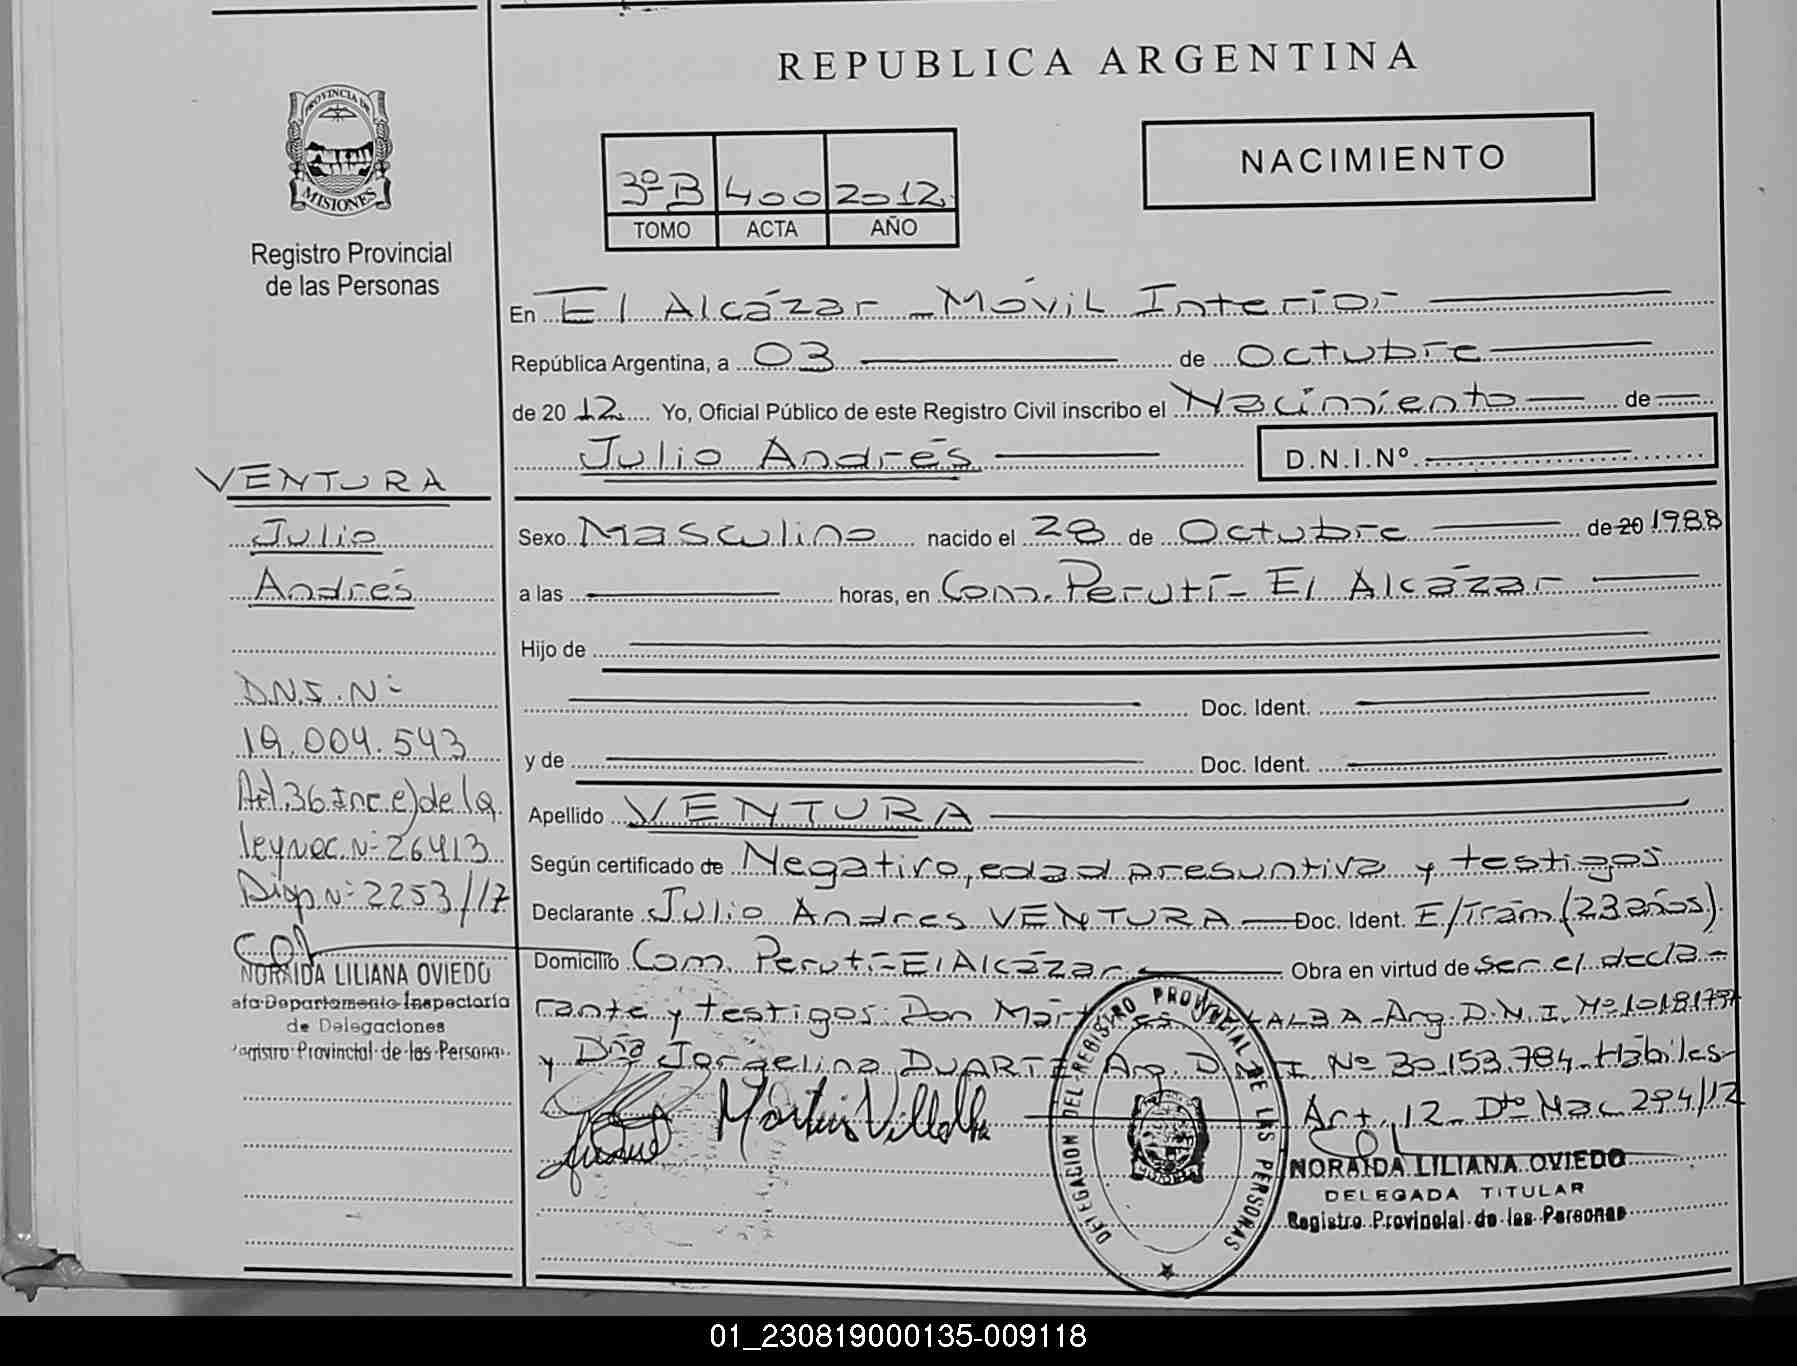 REPUBLICA ARGENTINA
PROVINCIA DE
MISIONES
Registro Provincial
de las Personas
3º B 400 2012
TOMO ACTA AÑO
NACIMIENTO
En El Alcázar - Móvil Interior
República Argentina, a 03 de Octubre
de 2012 Yo, Oficial Público de este Registro Civil inscribo el Nacimiento de
Julio Andrés D.N.I.Nº
VENTURA
Julio
Andrés
D.N.I. Nº
19.004.543
Art. 36 Inc e) de la
ley nac. Nº 26413
Disp Nº 2253/17
NORAIDA LILIANA OVIEDO
Departamento Inspectoría
de Delegaciones
Provincial de las Personas
Sexo Masculino nacido el 28 de Octubre de 20 1988
a las horas, en Com. Perutí - El Alcázar
Hijo de
Doc. Ident.
y de Doc. Ident.
Apellido VENTURA
Según certificado de Negativo, edad presuntiva y testigos
Declarante Julio Andres VENTURA Doc. Ident. E/Trám (23 años).
Domicilio Com. Perutí - El Alcázar Obra en virtud de ser el decla-
rante y testigos: Don - Arg. D.N.I. Nº
y Dña Jorgelina DUARTE Arg. D.N.I Nº 30.153.784 - Hábiles-
Martin Villalba
Art. 12 - Dto Nac 294/12
DELEGACION DEL REGISTRO PROVINCIAL DE LAS PERSONAS
NORAIDA LILIANA OVIEDO
DELEGADA TITULAR
Registro Provincial de las Personas
01_230819000135-009118